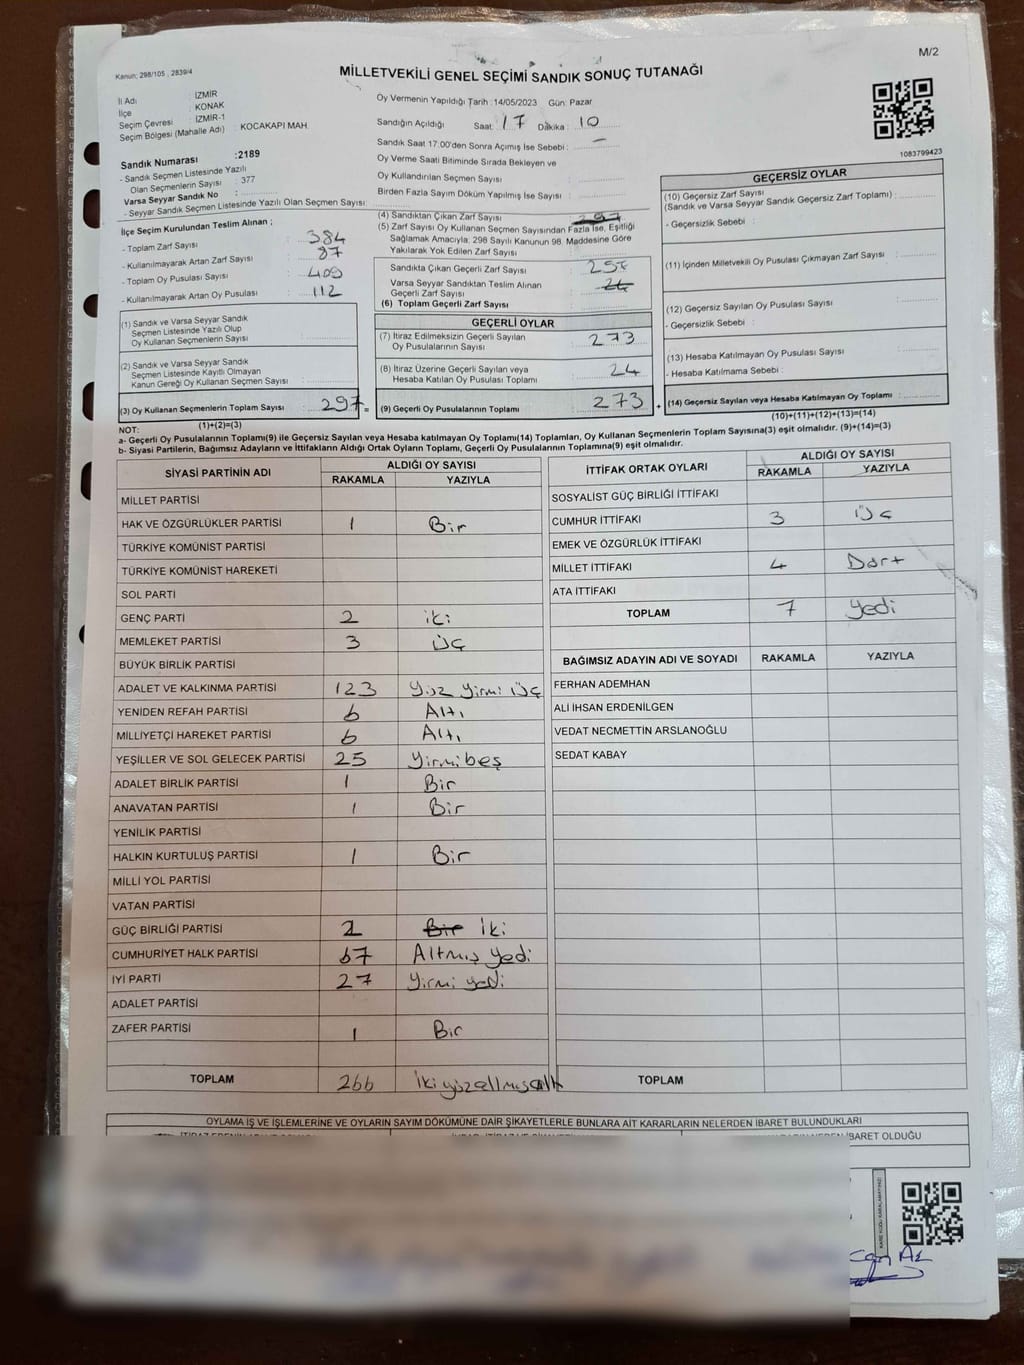 M/2
Kanun; 298/105 , 2839/4
MİLLETVEKİLİ GENEL SEÇİMİ SANDIK SONUÇ TUTANAĞI
İl Adı : İZMİR
İlçe : KONAK
Seçim Çevresi : İZMİR-1
Seçim Bölgesi (Mahalle Adı) : KOCAKAPI MAH.
Sandık Numarası :2189
- Sandık Seçmen Listesinde Yazılı
Olan Seçmenlerin Sayısı : 377
Varsa Seyyar Sandık No :
- Seyyar Sandık Seçmen Listesinde Yazılı Olan Seçmen Sayısı:
İlçe Seçim Kurulundan Teslim Alınan ;
- Toplam Zarf Sayısı : 384
- Kullanılmayarak Artan Zarf Sayısı : 87
- Toplam Oy Pusulası Sayısı : 409
- Kullanılmayarak Artan Oy Pusulası : 112
(1) Sandık ve Varsa Seyyar Sandık
Seçmen Listesinde Yazılı Olup
Oy Kullanan Seçmenlerin Sayısı :
(2) Sandık ve Varsa Seyyar Sandık
Seçmen Listesinde Kayıtlı Olmayan
Kanun Gereği Oy Kullanan Seçmen Sayısı :
(3) Oy Kullanan Seçmenlerin Toplam Sayısı : 297 =
(1)+(2)=(3)
Oy Vermenin Yapıldığı Tarih :14/05/2023 Gün: Pazar
Sandığın Açıldığı Saat: 17 Dakika : 10
Sandık Saat 17:00'den Sonra Açımış İse Sebebi : -
Oy Verme Saati Bitiminde Sırada Bekleyen ve
Oy Kullandırılan Seçmen Sayısı :
Birden Fazla Sayım Döküm Yapılmış İse Sayısı :
(4) Sandıktan Çıkan Zarf Sayısı : 297
(5) Zarf Sayısı Oy Kullanan Seçmen Sayısından Fazla İse, Eşitliği
Sağlamak Amacıyla; 298 Sayılı Kanunun 98. Maddesine Göre
Yakılarak Yok Edilen Zarf Sayısı :
Sandıkta Çıkan Geçerli Zarf Sayısı :
Varsa Seyyar Sandıktan Teslim Alınan
Geçerli Zarf Sayısı : 24
(6) Toplam Geçerli Zarf Sayısı :
GEÇERLİ OYLAR
(7) İtiraz Edilmeksizin Geçerli Sayılan
Oy Pusulalarının Sayısı : 273
(8) İtiraz Üzerine Geçerli Sayılan veya
Hesaba Katılan Oy Pusulası Toplamı : 24
(9) Geçerli Oy Pusulalarının Toplamı : 273 +
1083799423
GEÇERSİZ OYLAR
(10) Geçersiz Zarf Sayısı
(Sandık ve Varsa Seyyar Sandık Geçersiz Zarf Toplamı) :
- Geçersizlik Sebebi :
(11) İçinden Milletvekili Oy Pusulası Çıkmayan Zarf Sayısı :
(12) Geçersiz Sayılan Oy Pusulası Sayısı :
- Geçersizlik Sebebi :
(13) Hesaba Katılmayan Oy Pusulası Sayısı :
- Hesaba Katılmama Sebebi :
(14) Geçersiz Sayılan veya Hesaba Katılmayan Oy Toplamı :
(10)+(11)+(12)+(13)=(14)
NOT:
a- Geçerli Oy Pusulalarının Toplamı(9) ile Geçersiz Sayılan veya Hesaba katılmayan Oy Toplamı(14) Toplamları, Oy Kullanan Seçmenlerin Toplam Sayısına(3) eşit olmalıdır. (9)+(14)=(3)
b- Siyasi Partilerin, Bağımsız Adayların ve İttifakların Aldığı Ortak Oyların Toplamı, Geçerli Oy Pusulalarının Toplamına(9) eşit olmalıdır.
SİYASİ PARTİNİN ADI ALDIĞI OY SAYISI
RAKAMLA YAZIYLA
MİLLET PARTİSİ
HAK VE ÖZGÜRLÜKLER PARTİSİ 1 Bir
TÜRKİYE KOMÜNİST PARTİSİ
TÜRKİYE KOMÜNİST HAREKETİ
SOL PARTİ
GENÇ PARTİ 2 iki
MEMLEKET PARTİSİ 3 üç
BÜYÜK BİRLİK PARTİSİ
ADALET VE KALKINMA PARTİSİ 123 Yüz yirmi üç
YENİDEN REFAH PARTİSİ 6 Altı
MİLLİYETÇİ HAREKET PARTİSİ 6 Altı
YEŞİLLER VE SOL GELECEK PARTİSİ 25 Yirmibeş
ADALET BİRLİK PARTİSİ 1 Bir
ANAVATAN PARTİSİ 1 Bir
YENİLİK PARTİSİ
HALKIN KURTULUŞ PARTİSİ 1 Bir
MİLLİ YOL PARTİSİ
VATAN PARTİSİ
GÜÇ BİRLİĞİ PARTİSİ 2 Bir İki
CUMHURİYET HALK PARTİSİ 67 Altmış yedi
İYİ PARTİ 27 Yirmi yedi
ADALET PARTİSİ
ZAFER PARTİSİ 1 Bir
TOPLAM 266
İTTİFAK ORTAK OYLARI ALDIĞI OY SAYISI
RAKAMLA YAZIYLA
SOSYALİST GÜÇ BİRLİĞİ İTTİFAKI
CUMHUR İTTİFAKI 3 üç
EMEK VE ÖZGÜRLÜK İTTİFAKI
MİLLET İTTİFAKI 4 Dört
ATA İTTİFAKI
TOPLAM 7 yedi
BAĞIMSIZ ADAYIN ADI VE SOYADI RAKAMLA YAZIYLA
FERHAN ADEMHAN
ALİ İHSAN ERDENİLGEN
VEDAT NECMETTİN ARSLANOĞLU
SEDAT KABAY
TOPLAM
OYLAMA İŞ VE İŞLEMLERİNE VE OYLARIN SAYIM DÖKÜMÜNE DAİR ŞİKAYETLERLE BUNLARA AİT KARARLARIN NELERDEN İBARET BULUNDUKLARI
İBARET OLDUĞU